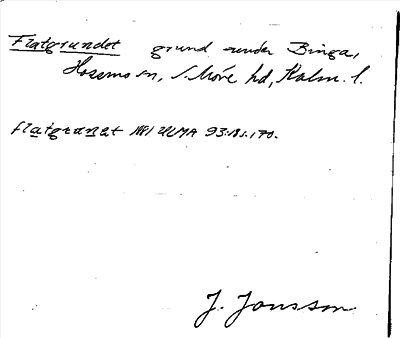 Flatgrundet grund under Binga,
Hossmo sn, S. Möre hd, Kalm. l.
flatgrunət ULMA 93:18 s. 170.
J. Jonsson